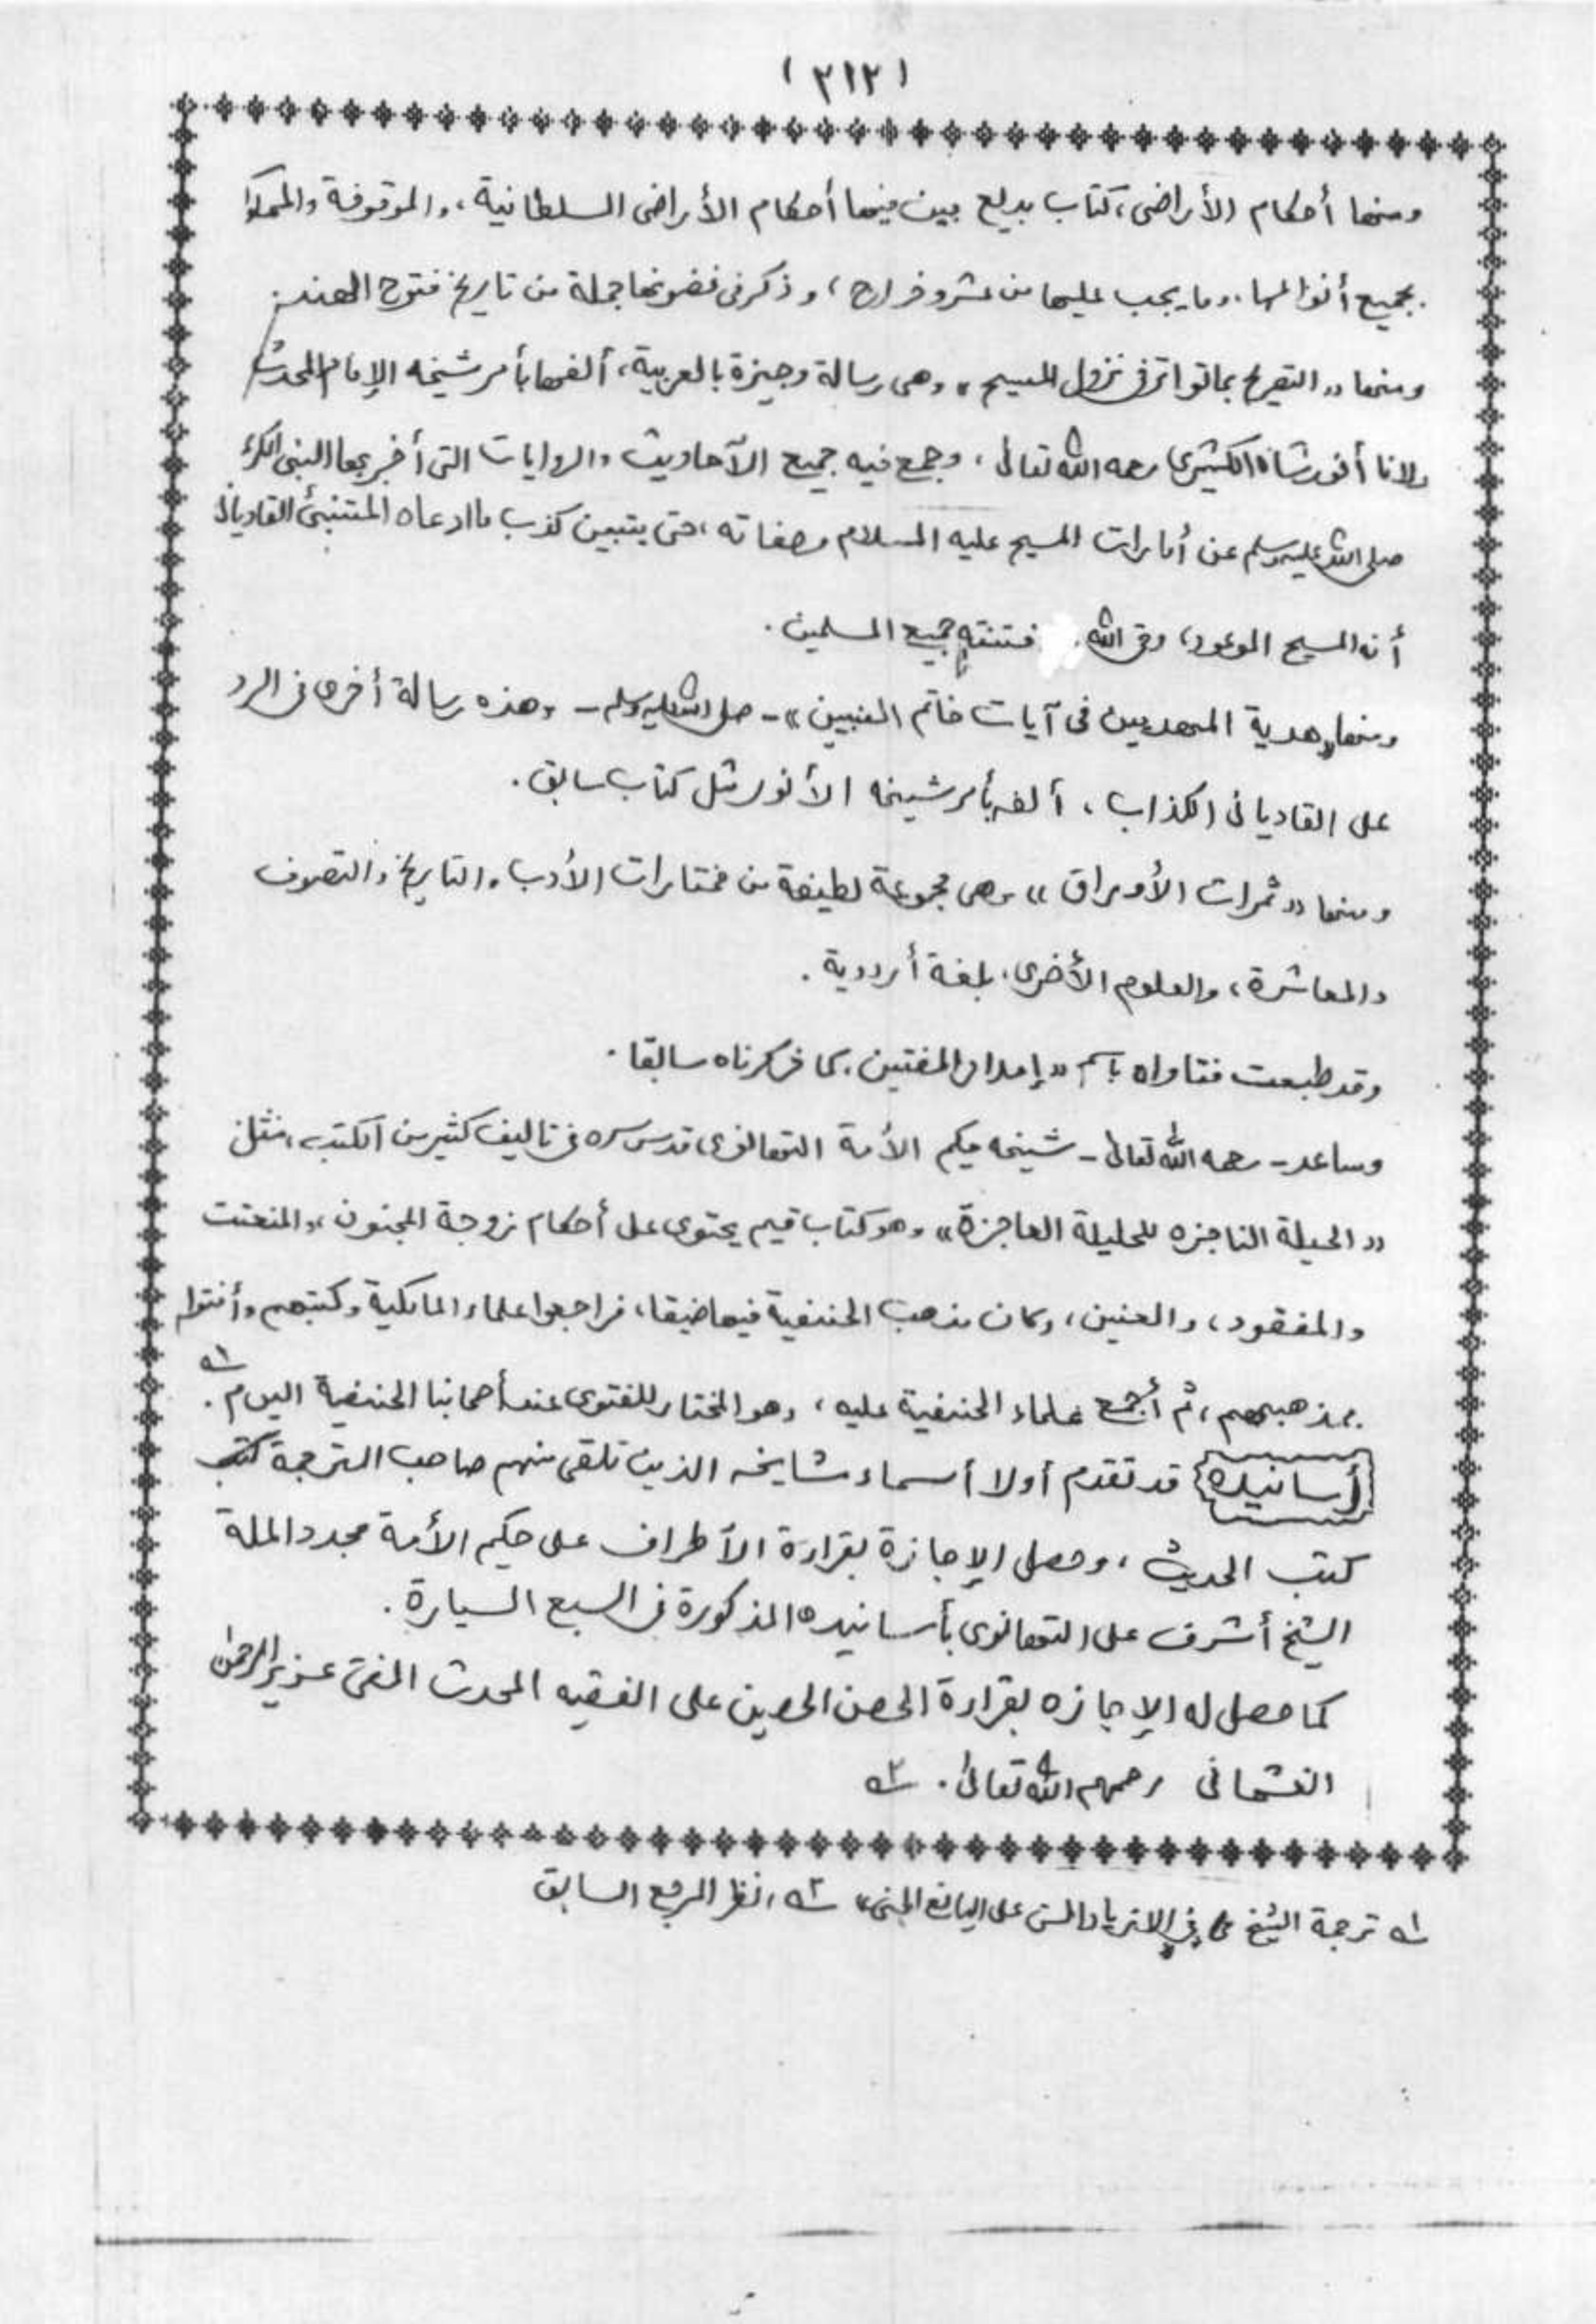 (٣١٢)
ومنها أحكام الأراضى، كتاب بديع بين فيها أحكام الأراضى السلطانية، والموقوفة والمملوكة
بجميع أنواعها، وما يجب عليها من عشر وخراج، وذكر فى غضونها جملة من تاريخ فتوح الهند.
ومنها «التصريح بما تواتر فى نزول المسيح» وهى رسالة وجيزة بالعربية، ألفها بأمر شيخه الإمام المحدث
ولانا أنور شاه الكشميرى رحمه الله تعالى، وجمع فيه جميع الآحاديث والروايات التى أخبر بها النبى الكريم
صلى الله عليه وسلم عن أمارات المسيح عليه السلام وصفاته، حتى يتبين كذب ما ادعاه المتنبئ القاديانى
أنه المسيح الموعود، وقى الله فتنته جميع المسلمين.
ومنها «هدية المهديين فى آيات خاتم النبيين» - صلى الله عليه وسلم - وهذه رسالة أخرى فى الرد
على القاديانى الكذاب، ألفه بأمر شيخه الأنور مثل كتاب سابق.
ومنها «ثمرات الأوراق» وهى مجموعة لطيفة من مختارات الأدب، والتاريخ، والتصوف
والمعاشرة، والعلوم الأخرى، بلغة أردوية.
وقد طبعت فتاواه باسم «إمداد المفتين، كما ذكرناه سابقا.
وساعد - رحمه الله تعالى - شيخه حكيم الأمة التهانوى قدس سره فى تاليف كثير من الكتب، مثل
«الحيلة الناجزه للحليلة العاجزة» وهو كتاب قيم يحتوى على أحكام زوجة المجنون، والمتعنت
والمفقود، والعنين، وكان مذهب الحنفية فيها ضيقا، فراجعوا علماء المالكية وكتبهم وأفتوا
بمذهبهم، ثم أجمع علماء الحنفية عليه، وهو المختار للفتوى عند أصحابنا الحنفية اليوم. ١ه
أسانيده قد تقدم أولا أسماء مشايخه الذين تلقى منهم صاحب الترجمة كتب
كتب الحديث، وحصل الإجازة بقراءة الأطراف على حكيم الأمة مجدد الملة
الشيخ أشرف على التهانوى بأسانيده المذكورة فى السبع السيارة.
كما حصل له الإجازه بقراءة الحصن الحصين على الفقيه المحدث المفتى عزيز الرحمن
العثمانى رحمهم الله تعالى. ٢ه
١ه ترجمة الشيخ فى الازدياد السنى على اليانع الجنى» ٢ه انظر المرجع السابق